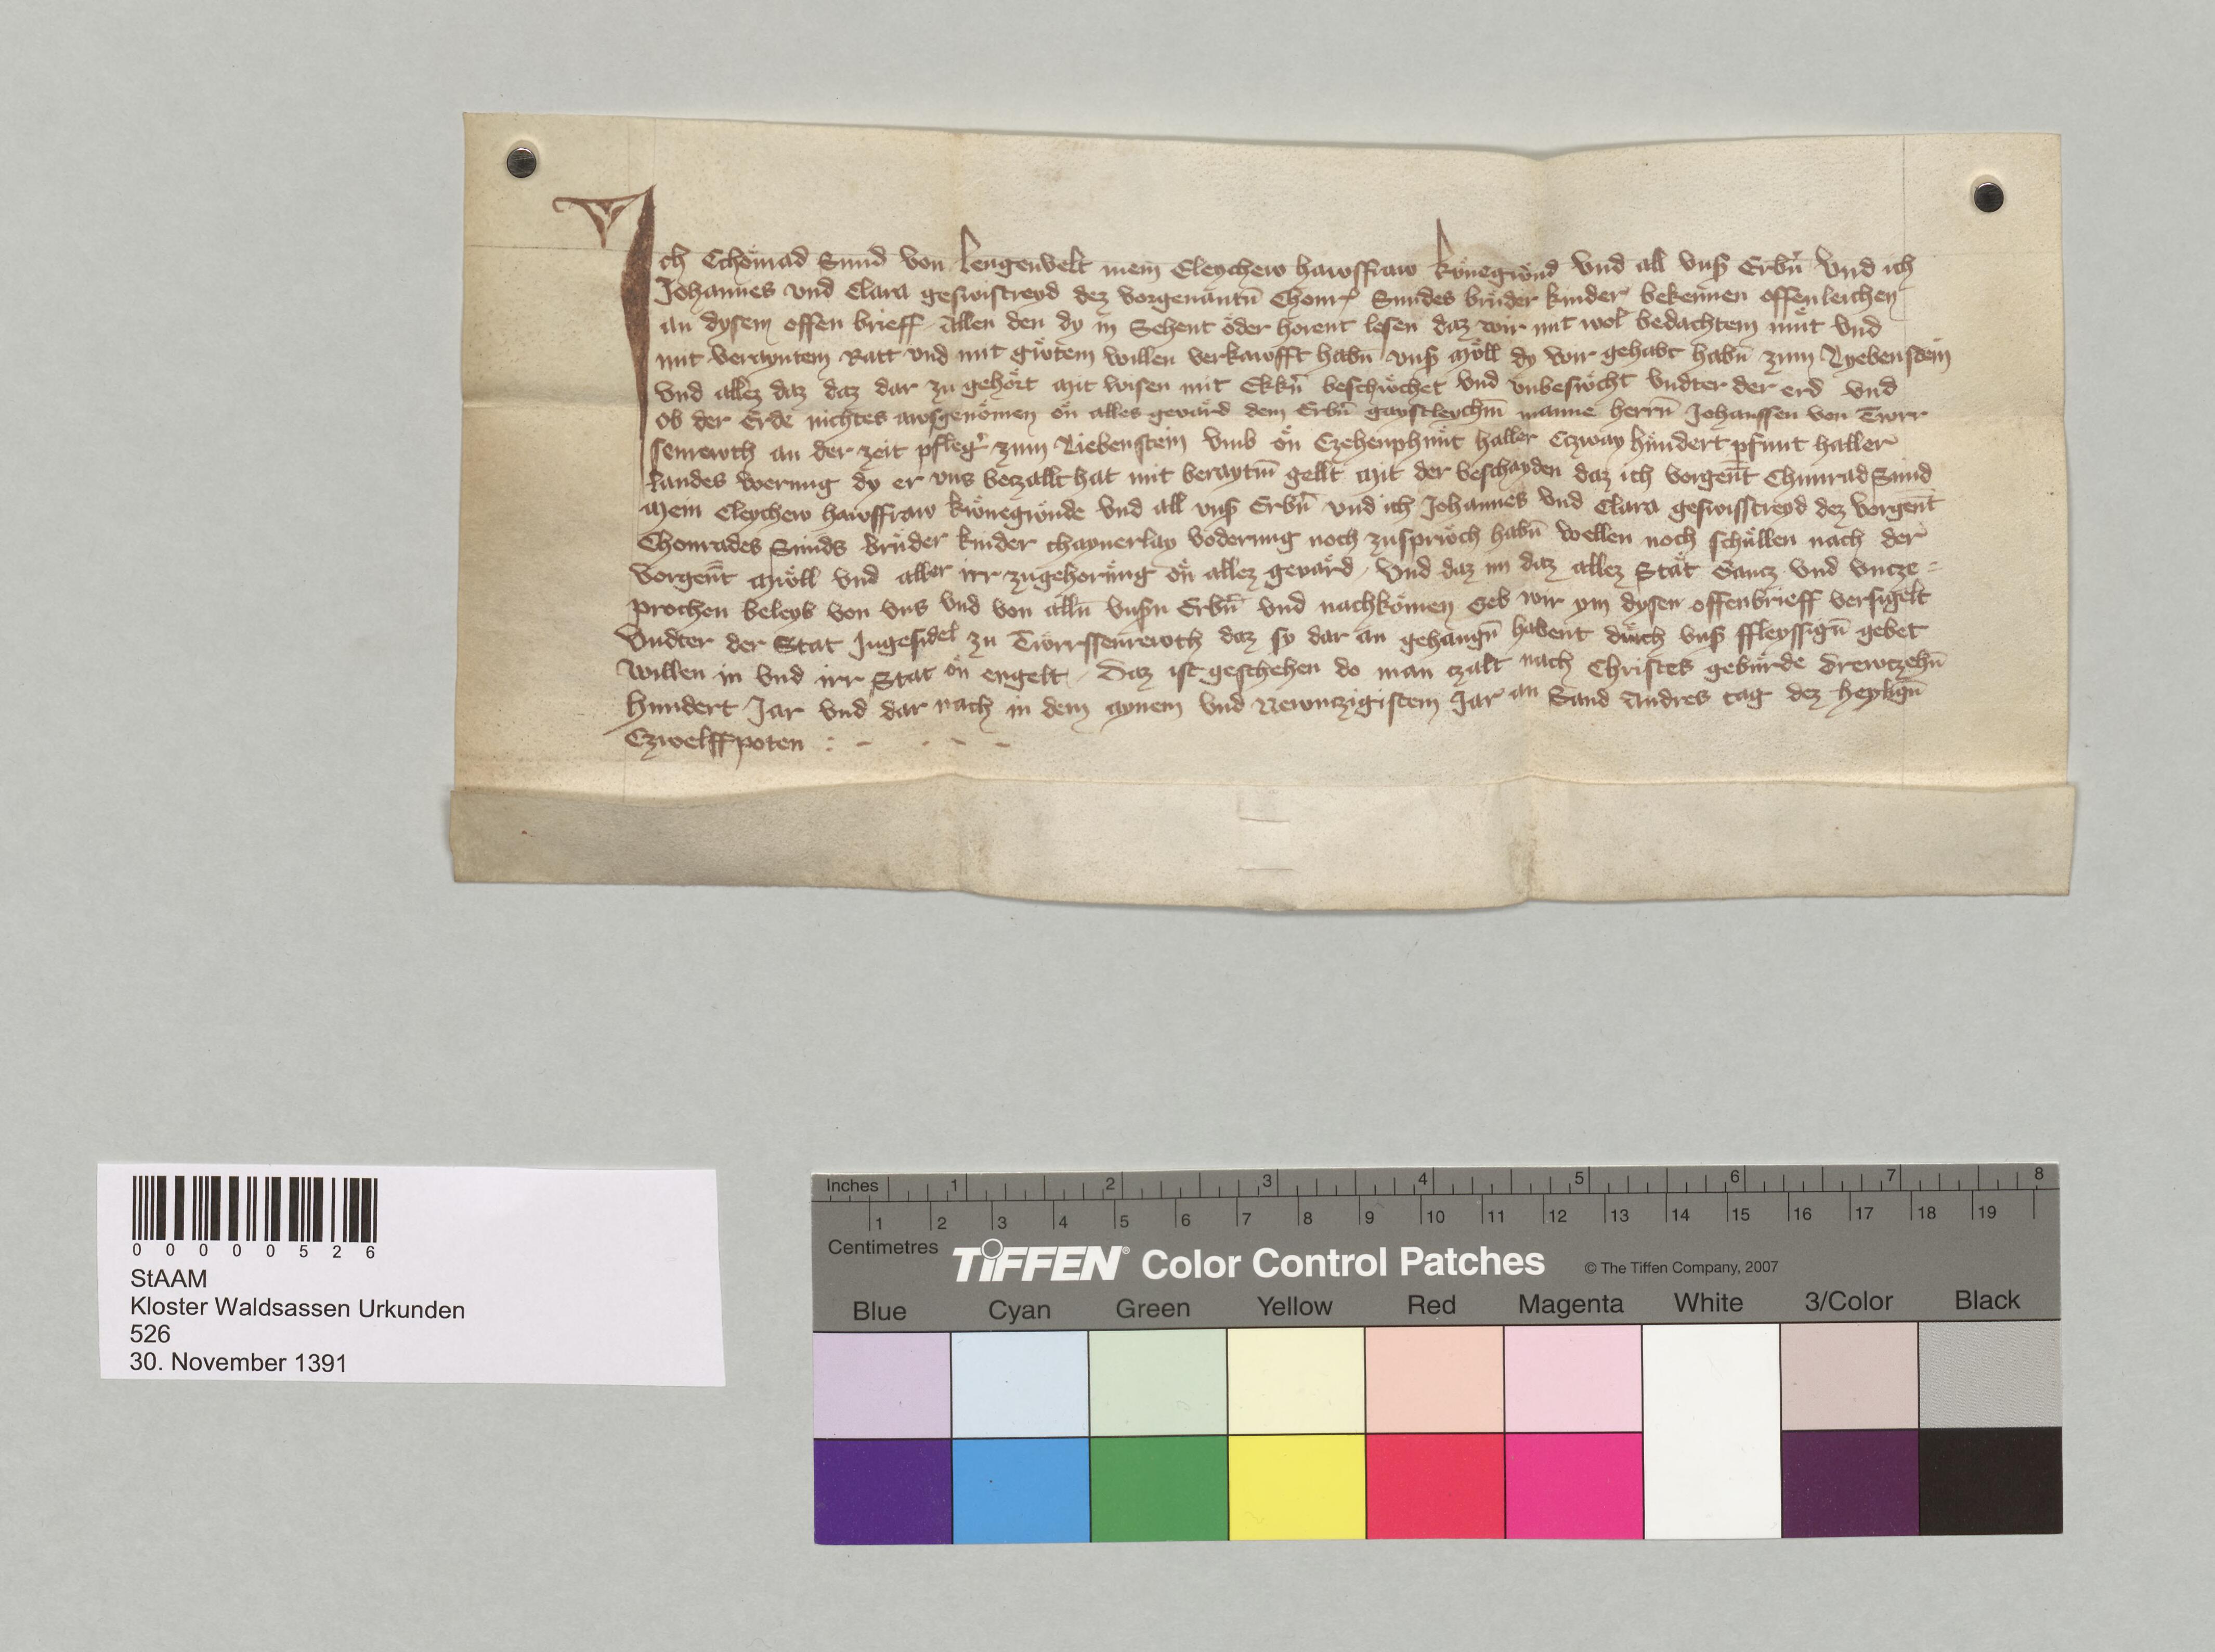 Ich Chönrad Sund von Lengenvelt mein Eleychew hawsfraw Könegwnd vnd all vnß Erbñ Vnd ich
Johannes vnd Clara geswistreyd dez vorgenantñ Chonr Sundes brüder kinder bekennen offenleichen
an dysem offen brieff Allen den dy in Sehent oder hörent lesen daz wir mit wol bedachtem müt vnd
mit veraynten Ratt vnd mit gwtem willen verkawfft habñ vnß Mőll dy wir gehabt habñ zum Lyebensdein
vnd allez daz daz dar zu gehőrt Mit wisen mit Ekkñ beschwchet vnd vnbeswcht vndter der erd vnd
ob der Erde nichtes awsgenőmen őn alles gevard dem Erbñ gaystleychm manne herrñ Johanssen von Twrr
senrewth an der zeit pfleger zum Liebenstein vmb őn Czehenphunt haller Czway hundert pfunt haller
landes werung dy er vns beczallt hat mit beraytm gellt Mit der beschayden daz ich vorgent Chunrad Sund
Mein Eleychew hawsfraw kwnegwnde vnd all vnß Erbñ vnd ich Johannes vnd Clara geswistreyd dez vorgent
Chonrades Sunds brüder kinder chaynerlay voderung noch zusprwch habñ wellen noch schullen nach der
vorgent Mőll vnd aller irr zugehorung őn allez gevard Vnd daz im daz allez Stät Gancz vnd vncze=
prochen beleyb von vns vnd von allñ vnsñ Erbñ vnd nachkőmen Geb wir ym dysen offenbrieff versigelt
vndter der Stat Jngesidel zu Twrrssenrewth daz sy dar an gehangñ habent durch vnß ffleyssigñ gebet
willen in vnd irr Stat őn engelt Daz ist geschehen do man czalt nach Christes gebürde drewczehñ
hundert Jar vnd dar nach in dem aynem vnd Newnczigistem Jar an Sand Andres tag dez heyligñ
Czwelffpoten : -  - - -
0 0 0 0 0 5 2 6
StAAM
Kloster Waldsassen Urkunden
526
30. November 1391
Inches 1 2 3 4 5 6 7 8
1 2 3 4 5 6 7 8 9 10 11 12 13 14 15 16 17 18 19
Centimetres
TIFFEN® Color Control Patches © The Tiffen Company, 2007
Blue Cyan Green Yellow Red Magenta White 3/Color Black